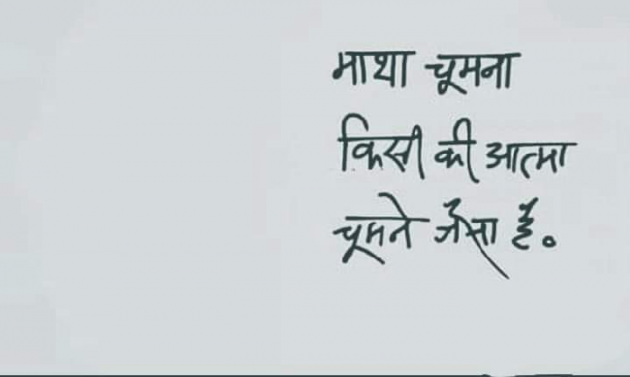 माथा चूमना
किसी की आत्मा
चूमने जैसा है.